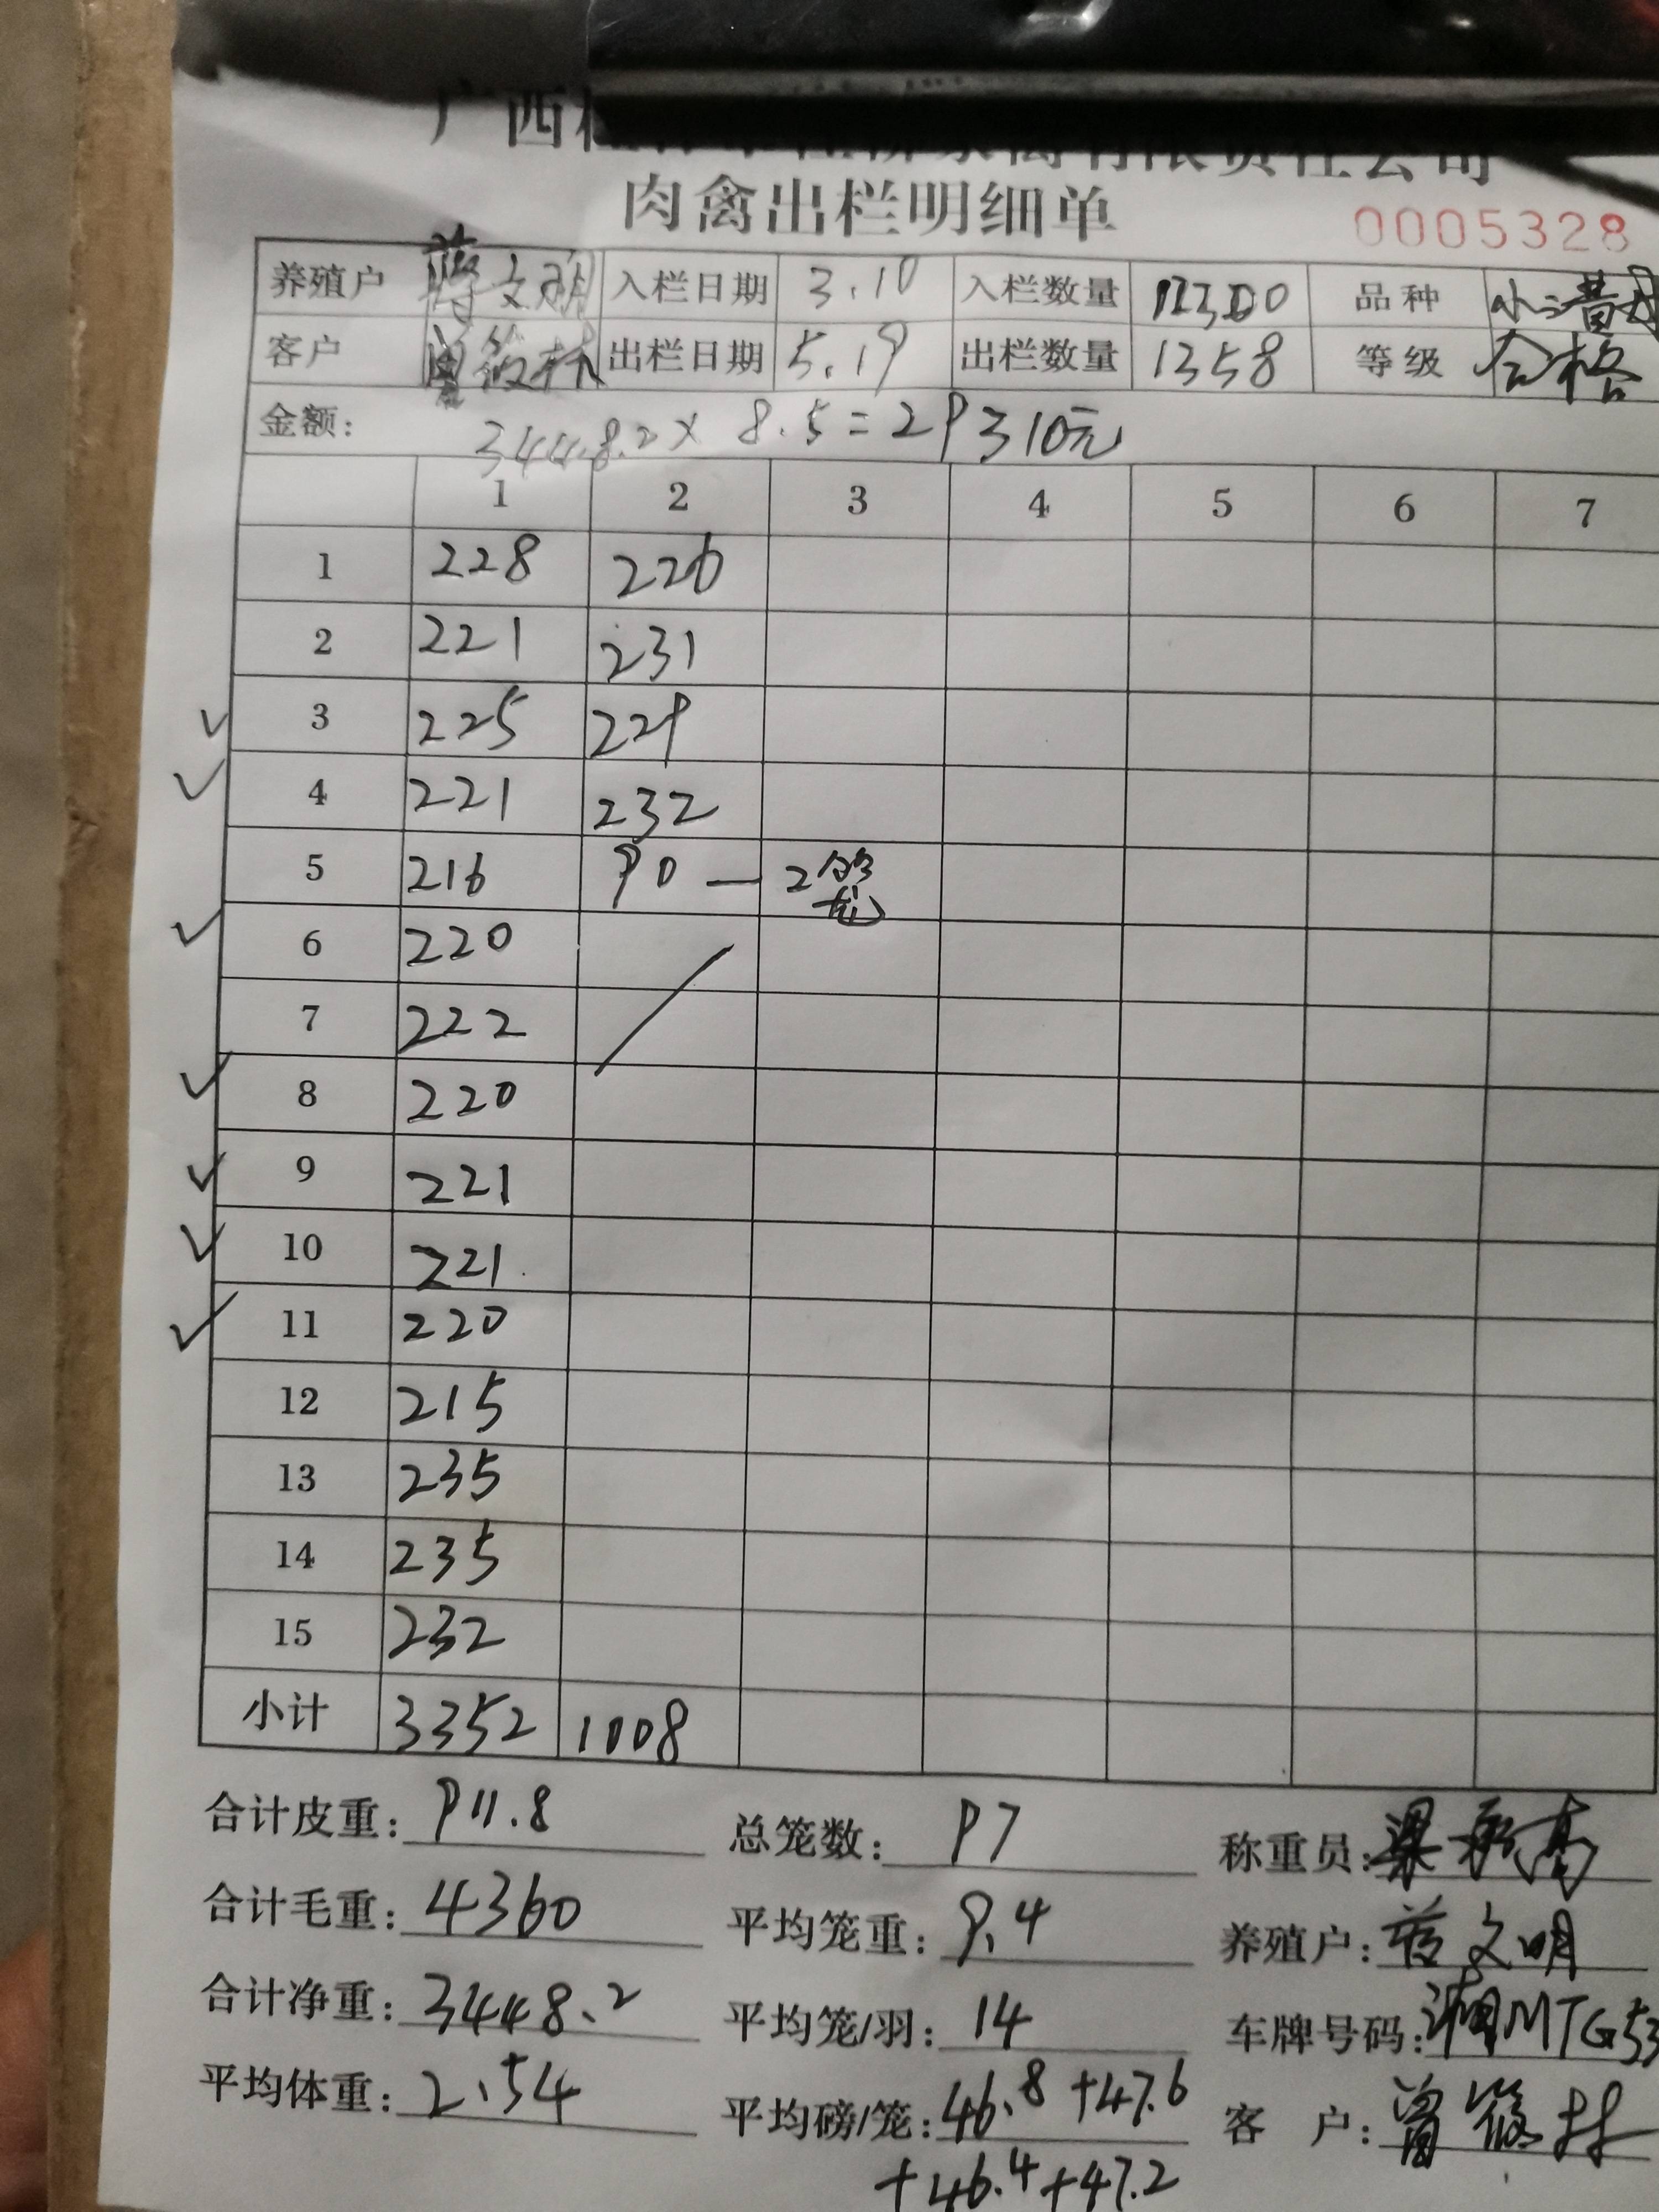 广西
肉禽出栏明细单
0005328
养殖户 蒋文明 入栏日期 3.10 入栏数量 品种
客户 曾筱林 出栏日期 5.19 出栏数量 1358 等级 合格
金额: 3448.2 × 8.5 = 29310元
1 2 3 4 5 6 7
1 228 226
2 221 231
3 225 229
4 221 232
5 216 90 — 2笼
6 220
7 222
8 220
9 221
10 221
11 220
12 215
13 235
14 235
15 232
小计 3352 1008
合计皮重: 911.8 总笼数: 97 称重员:
合计毛重: 4360 平均笼重: 9.4 养殖户: 蒋文明
合计净重: 3448.2 平均笼/羽: 14 车牌号码: 湘MTG53
平均体重: 2.54 平均磅/笼: 46.8 +47.6 客 户: 曾筱林
+46.4+47.2